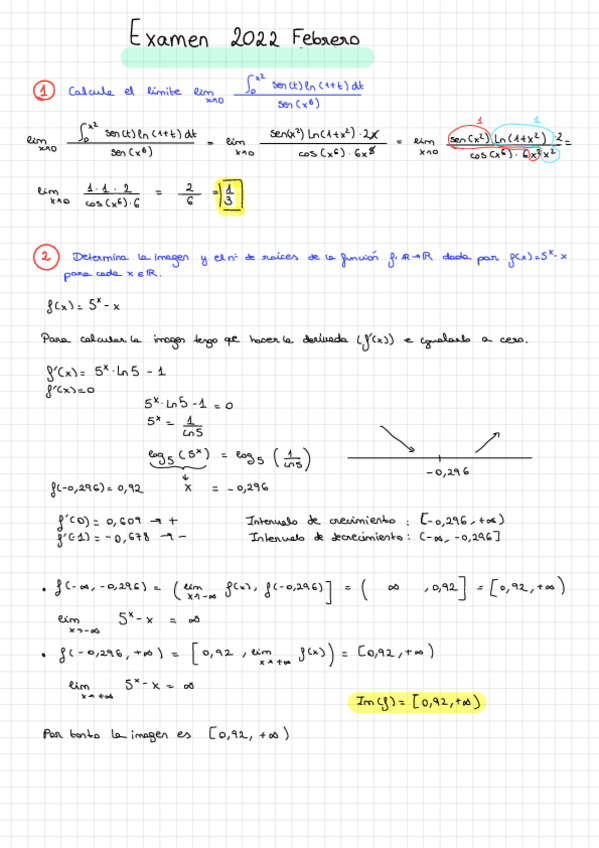 Examen 2022 Febrero
1 Calcula el límite lim x→0 ∫₀^x² sen(t) ln(1+t) dt / sen(x⁶)
lim x→0 ∫₀^x² sen(t) ln(1+t) dt / sen(x⁶) = lim x→0 sen(x²) ln(1+x²) · 2x / cos(x⁶) · 6x⁵ = lim x→0 sen(x²) ln(1+x²) · 2 / cos(x⁶) · 6x²x² = 1 1
lim x→0 1·1·2 / cos(x⁶)·6 = 2/6 = 1/3
2 Determina la imagen y el nº de raíces de la función f: R→R dada por f(x)=5ˣ-x
para cada x∈R.
f(x) = 5ˣ - x
Para calcular la imagen tengo qe hacer la derivada (f'(x)) e igualarlo a cero.
f'(x) = 5ˣ · Ln5 - 1
f'(x)=0
5ˣ · Ln5 - 1 = 0
5ˣ = 1/Ln5
log₅(5ˣ) = log₅(1/Ln5)
-0,296
f(-0,296)=0,92 x = -0,296
f'(0) = 0,609 → + Intervalo de crecimiento: [-0,296, +∞)
f'(-1) = -0,678 → - Intervalo de decrecimiento: (-∞, -0,296]
• f(-∞, -0,296) = (lim x→-∞ f(x), f(-0,296)] = ( ∞ , 0,92] = [0,92, +∞)
lim x→-∞ 5ˣ - x = ∞
• f(-0,296, +∞) = [0,92, lim x→+∞ f(x)) = [0,92, +∞)
lim x→+∞ 5ˣ - x = ∞
Im(f) = [0,92, +∞)
Por tanto la imagen es [0,92, +∞)